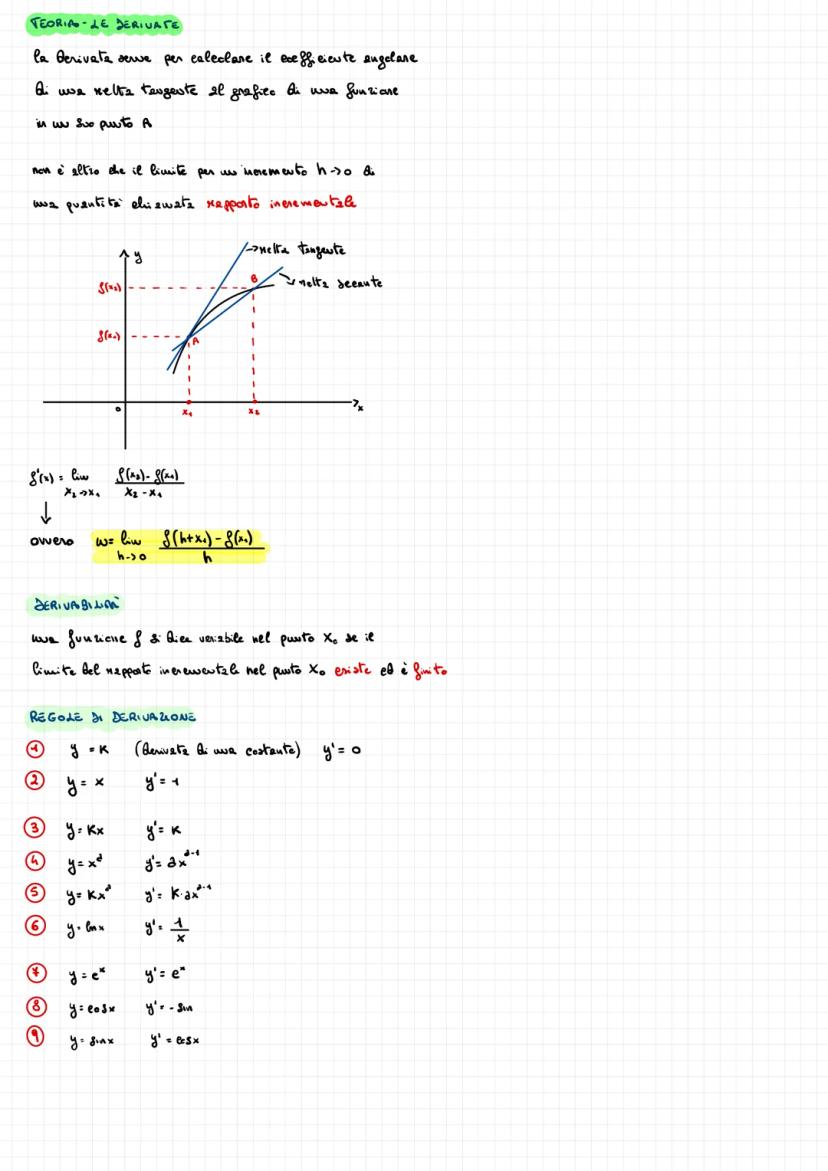 TEORIA - LE DERIVATE
la derivata serve per calcolare il coefficiente angolare
di una retta tangente al grafico di una funzione
in un suo punto A
non è altro che il limite per un incremento h->0 di
una quantità chiamata rapporto incrementale
y
->retta tangente
B
retta secante
f(x₂)
f(x₁)
A
0
x₁
x₂
x
f'(x) = lim f(x₂)- f(x₁)
x₂->x₁ x₂ - x₁
↓
ovvero m= lim f(h+x₁) - f(x₁)
h->0 h
DERIVABILITÀ
una funzione f si dice variabile nel punto x₀ se il
limite del rapporto incrementale nel punto x₀ esiste ed è finito
REGOLE DI DERIVAZIONE
① y = K (derivata di una costante) y' = 0
② y = x y' = 1
③ y = Kx y' = K
④ y = xᵃ y' = axᵃ⁻¹
⑤ y = Kxᵃ y' = K·axᵃ⁻¹
⑥ y = ln x y' = 1/x
⑦ y = eˣ y' = eˣ
⑧ y = cosx y' = - sin
⑨ y = sinx y' = cosx